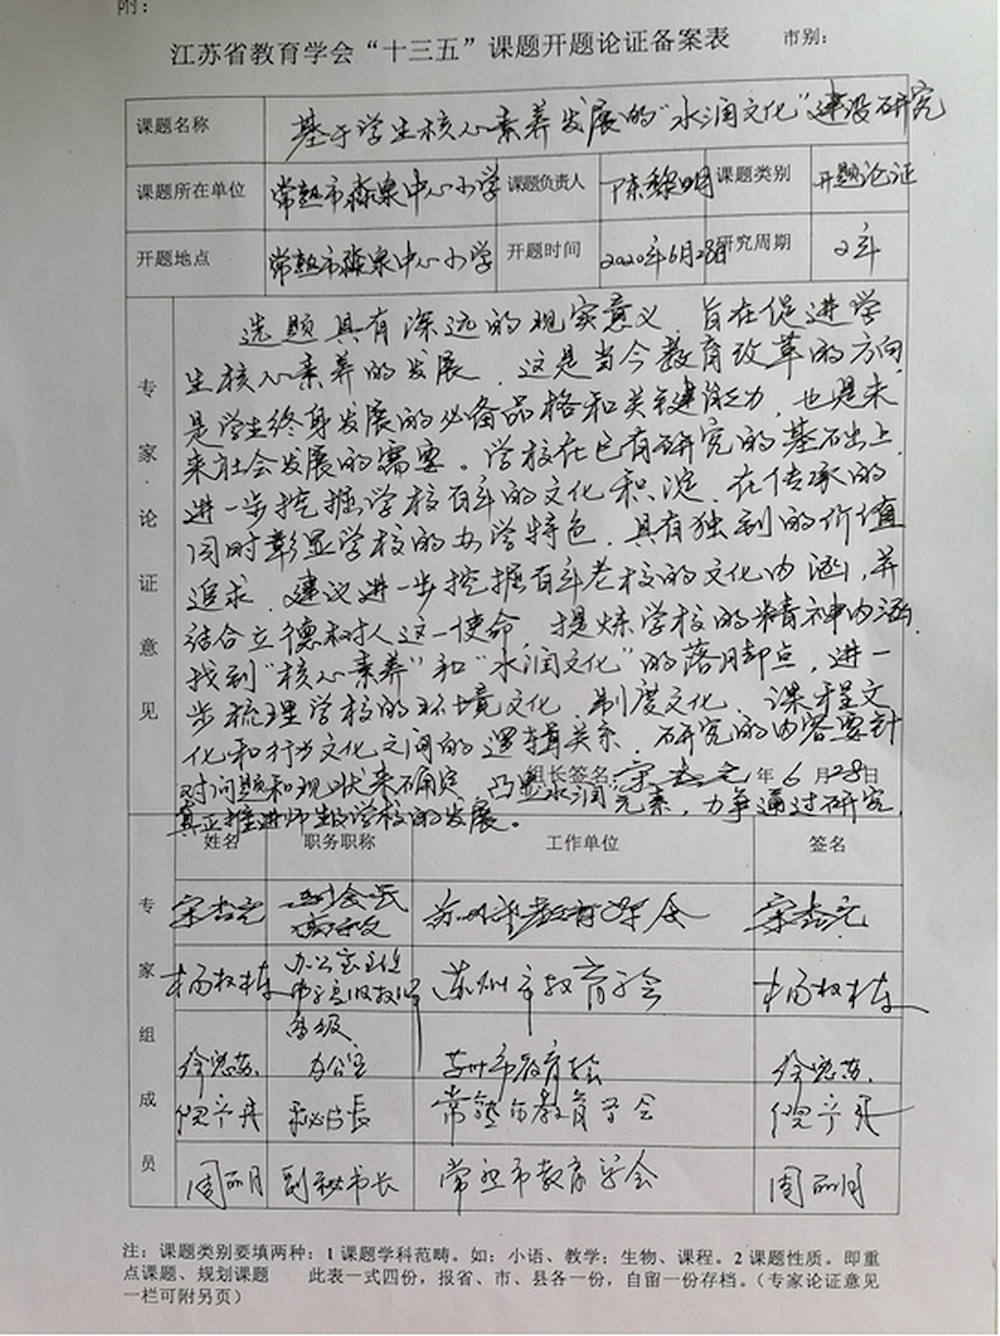 附：
江苏省教育学会“十三五”课题开题论证备案表 市别：
课题名称 基于学生核心素养发展的“水润文化”建设研究
课题所在单位 常熟市淼泉中心小学 课题负责人 陈黎明 课题类别 开题论证
开题地点 常熟市淼泉中心小学 开题时间 2020年6月28日 研究周期 2年
专家论证意见
选题具有深远的现实意义，旨在促进学
生核心素养的发展，这是当今教育改革的方向，
是学生终身发展的必备品格和关键能力，也是未
来社会发展的需要。学校在已有研究的基础上
进一步挖掘学校百年的文化积淀，在传承的
同时彰显学校的办学特色，具有独到的价值
追求，建议进一步挖掘百年老校的文化内涵，并
结合立德树人这一使命，提炼学校的精神内涵，
找到“核心素养”和“水润文化”的落脚点，进一
步梳理学校的环境文化、制度文化、课程文
化和行为文化之间的逻辑关系，研究的内容要针
对问题和现状来确定，凸显水润元素，力争通过研究，
真正推进师生的学校的发展。
组长签名： 年 6 月 28 日
专家组成员
姓名 职务职称 工作单位 签名
苏州市教育学会
杨权栋 办公室主任 苏州市教育学会 杨权栋
高级
办公室 苏州市教育学会
秘书长 常熟市教育学会
周丽明 副秘书长 常熟市教育学会 周丽明
注：课题类别要填两种：1 课题学科范畴。如：小语、教学；生物、课程。2 课题性质。即重
点课题、规划课题 此表一式四份，报省、市、县各一份，自留一份存档。（专家论证意见
一栏可附另页）